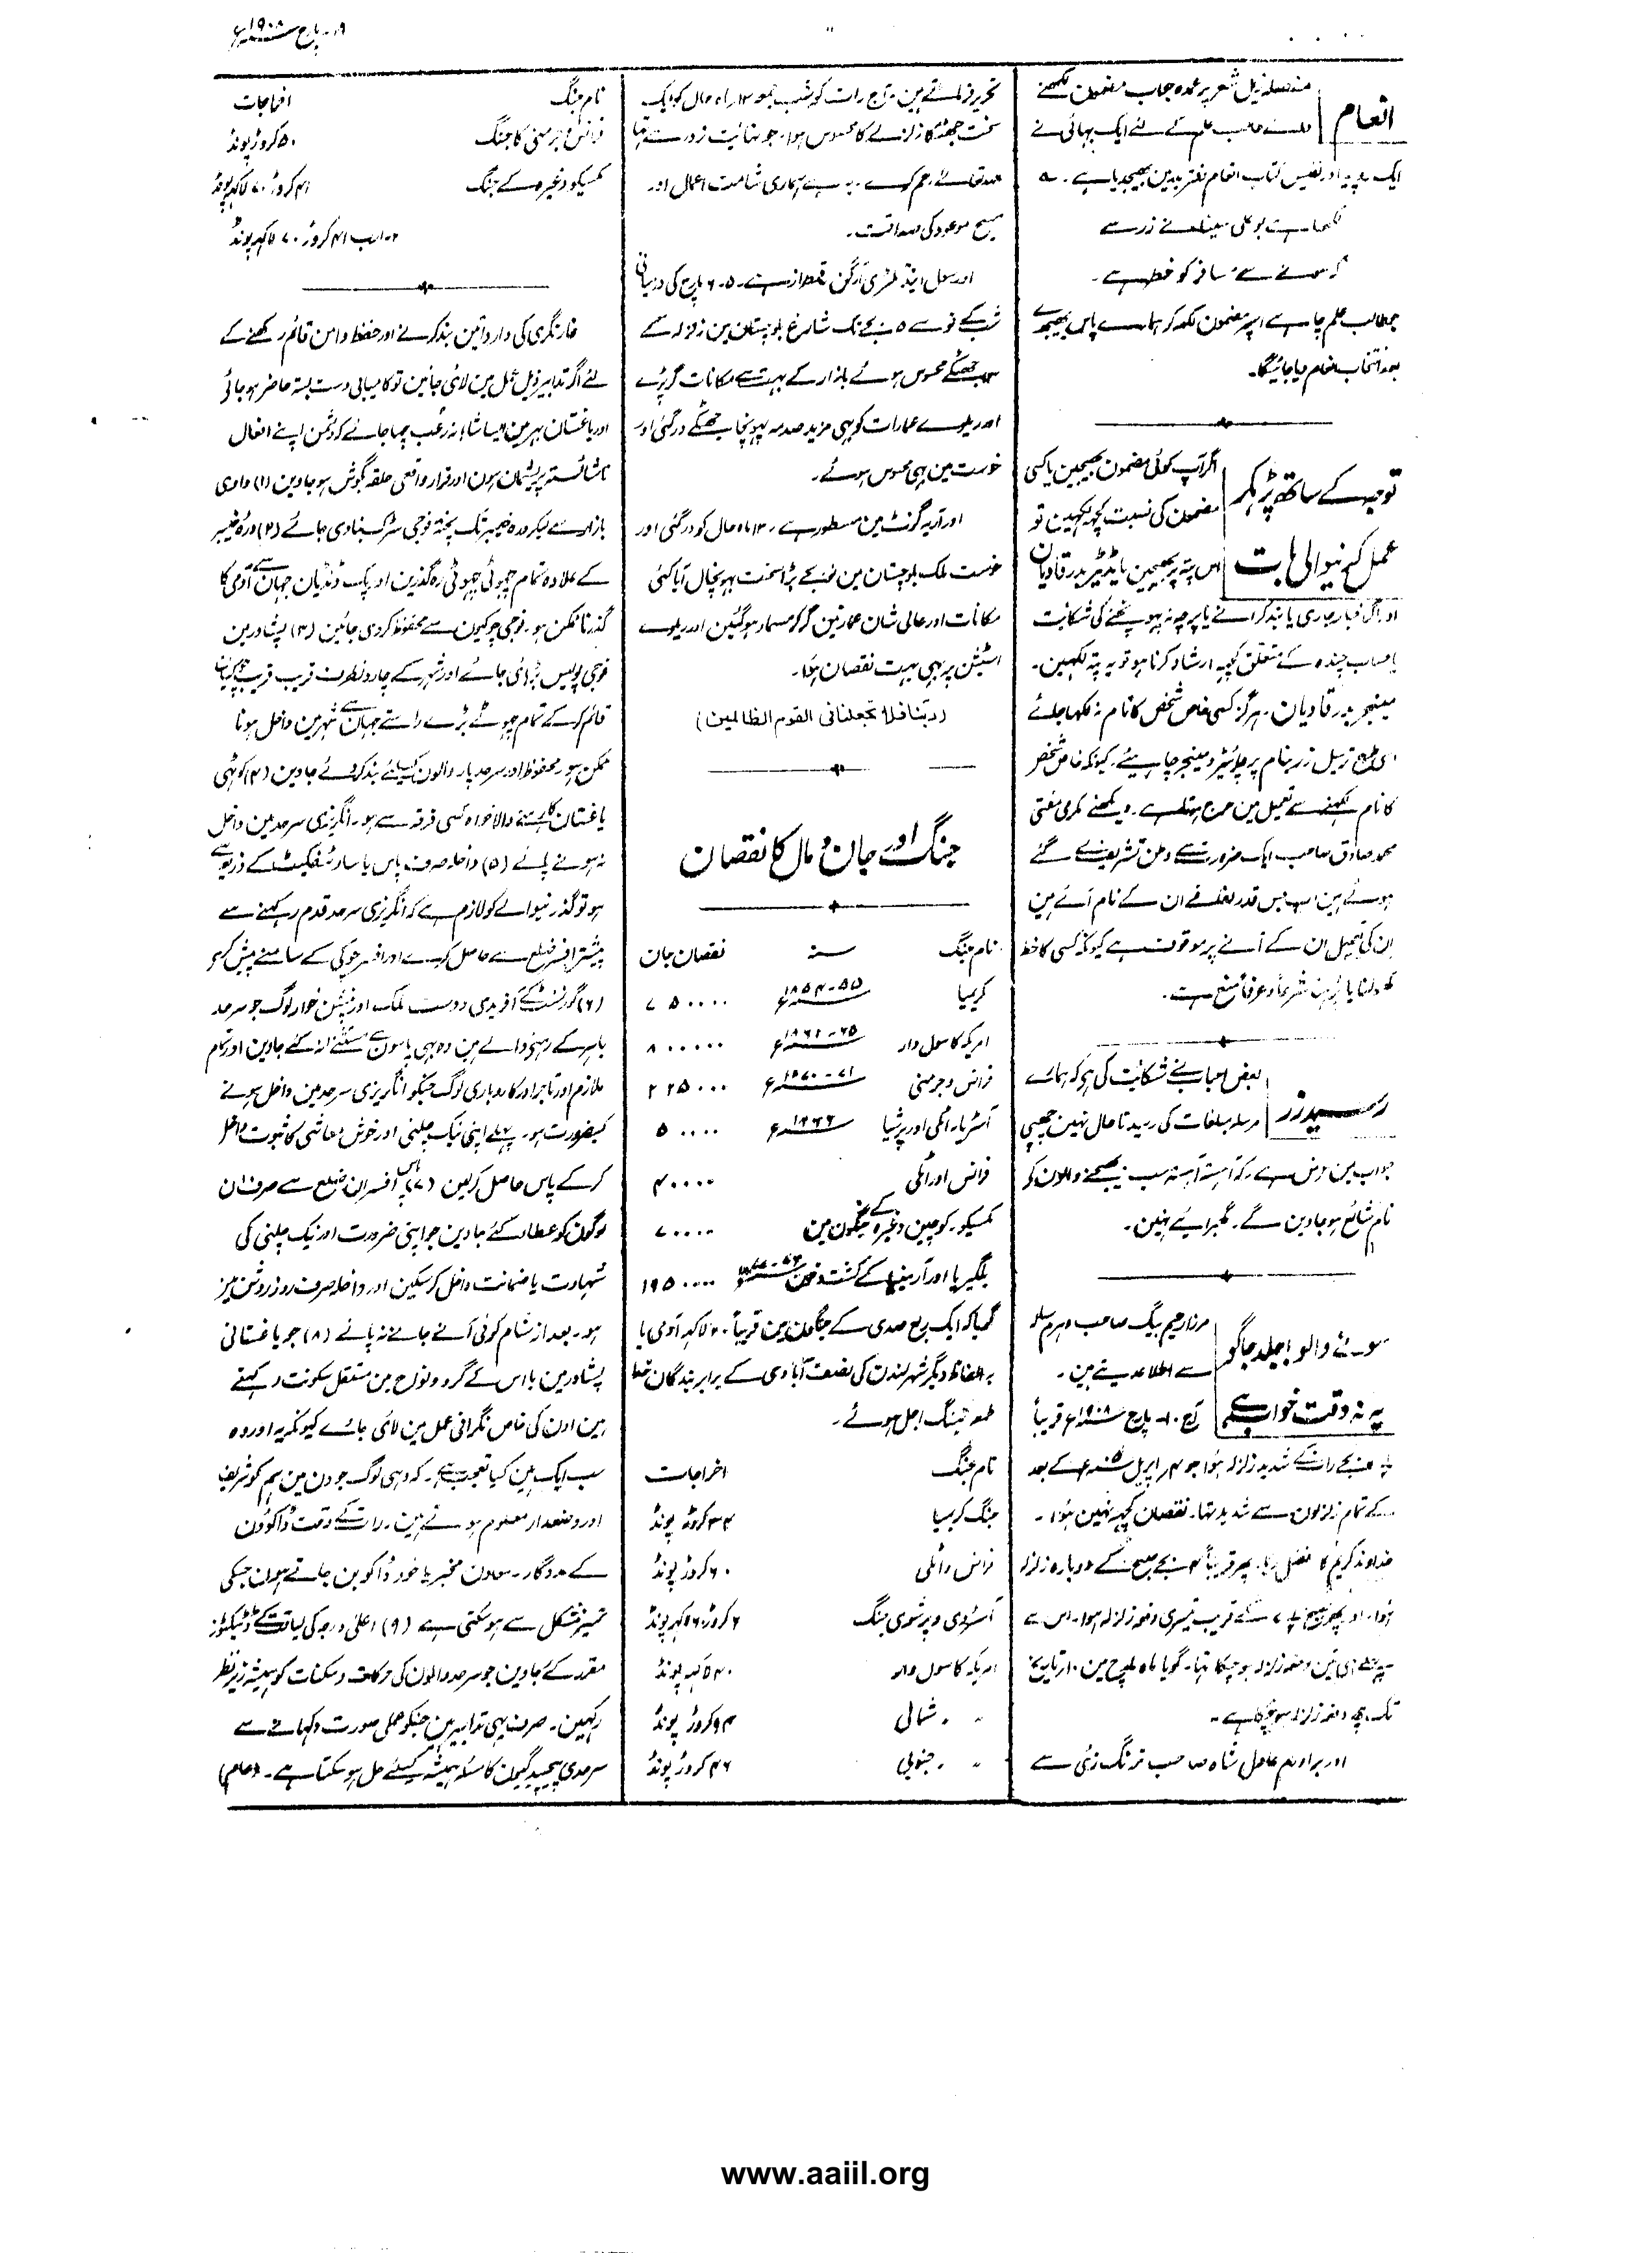 ۱۹- مارچ ۱۹۰۸ء
انعام
مندرجہ ذیل شعر پر عمدہ جواب مضمون لکھنے
والے طالب علم کے لئے ایک بہائی نے
ایک روپیہ اور نفیس کتاب انعام دفتر بدر مین بھیجدیا ہے۔
لکھا ہے بو علی سینا نے زر سے
کہ سونے سے مسافر کو خطر ہے۔
جو طالب علم چاہے اسپر مضمون لکھ کر ہمارے پاس بھیجدے
بعد انتخاب انعام دیا جائیگا۔
توجہ کے ساتھ پڑہکر
عمل کرنیوالی بات
اگر آپ کوئی مضمون بھیجین یا کسی
مضمون کی نسبت کچھ لکھین تو
اس پتہ پر بھیجین ایڈیٹر بدر قادیان
اور اگر اخبار جاری یا بند کرانے یا پرچہ نہ پہونچنے کی شکایت
یا حساب چندہ کے متعلق کچھ ارشاد کرنا ہو تو یہ پتہ لکھین۔
مینیجر بدر قادیان۔ ہرگز کسی خاص شخص کا نام نہ لکھا جائے
اسی طرح ترسیل زر بنام پروپرائیٹر و مینیجر چاہیئے۔ کیونکہ خاص شخص
کا نام لکھنے سے تعمیل مین حرج ہوتا ہے۔ دیکھئے مکرمی مفتی
محمد صادق صاحب ایک ضرورت سے وطن تشریف لے گئے
ہوئے ہین اب جس قدر لفافے ان کے نام آئے ہین
ان کی تعمیل ان کے آنے پر موقوف ہے کیونکہ کسی کا خط
کھولنا یا پڑہنا شرعاً و عرفاً منع ہے۔
رسید زر
بعض احباب نے شکایت کی ہے کہ ہمارے
مرسلہ مبلغات کی رسید تا حال نہین چھپی
جواب مین عرض ہے۔ کہ آہستہ آہستہ سب بھیجنے والون کے
نام شائع ہو جاوین گے۔ گھبرائیے نہین۔
سونے والو جلد جاگو
یہ نہ وقت خواب ہے
مرزا رحیم بیگ صاحب
سے اطلاع دیتے ہین۔
آج ۱۰- مارچ ۱۹۰۸ء قریباً
بجے رات کے شدید زلزلہ ہوا جو ۴ اپریل ۱۹۰۵ء کے بعد
کے تمام زلزلون سے شدید تہا۔ نقصان کچھ نہین ہوا۔
خداوند کریم کا فضل رہا۔ پھر قریباً ۴ بجے صبح کے دوبارہ زلزلہ
ہوا۔ اور پھر صبح کے قریب تیسری دفعہ زلزلہ ہوا۔ اس سے
پہلے ہی تین دفعہ زلزلہ ہو چکا تہا۔ گویا ماہ مارچ مین ۱۰ تاریخ
تک چھ دفعہ زلزلہ ہو چکا ہے۔
اور برادرم عادل شاہ صاحب ترنگ زئی سے
تحریر فرماتے ہین۔ آج رات کو ۱۳ ماہ حال کو ایک
سخت جھٹکا زلزلے کا محسوس ہوا۔ جو نہائیت زور سے تہا
خدا تعالے رحم کرے۔ یہ ہے ہماری شامت اعمال اور
مسیح موعود کی صداقت۔
اور سول اینڈ ملٹری آرگن رقمطراز ہے۔ ۵-۶ مارچ کی درمیانی
شب کے نو سے ۵ بجے تک شارغ بلوچستان مین زلزلہ کے
جھٹکے محسوس ہوئے بازار کے بہت سے مکانات گر پڑے
اور ریلوے عمارات کو بہی مزید صدمہ پہونچا۔ جھٹکے درگئی اور
خوست مین بہی محسوس ہوئے۔
اور آریہ گزٹ مین مسطور ہے۔ ۱۳ ماہ حال کو درگئی اور
خوست ملک بلوچستان مین نو بجے بڑا سخت بہونچال آیا کئی
مکانات اور عالی شان عمارتین گر کر مسمار ہو گئین اور ریلوے
اسٹیشن پر بہی بہت نقصان ہوا۔
(ربنا فلا تجعلنا فی القوم الظالمین)
جنگ اور جان و مال کا نقصان
نام جنگ سنہ نقصان جان
کریمیا ۵۵-۱۸۵۴ء ۷۵۰۰۰۰
امریکہ کا سول وار ۶۵-۱۸۶۱ء ۸۰۰۰۰۰
فرانس و جرمنی ۷۱-۱۸۷۰ء ۲۲۵۰۰۰
آسٹریا۔ اٹلی اور پرشیا ۱۸۶۶ء ۵۰۰۰۰
فرانس اور اٹلی ۴۰۰۰۰
مکسیکو۔ کوچین وغیرہ کے جنگون مین ۷۰۰۰۰
بلگیریا اور آرمینیا کے کشت و خون ۱۹۵۰۰۰۰
گویا کہ ایک ربع صدی کے جنگون مین قریباً ۲۰ لاکہہ آدمی یا
بہ الفاظ دیگر شہر لندن کی نصف آبادی کے برابر بندگان خدا
طعمہ نہنگ اجل ہوئے۔
نام جنگ اخراجات
جنگ کریمیا ۳۴ کروڑ پونڈ
فرانس و اٹلی ۶۰ کروڑ پونڈ
آسٹروی و پرشوی جنگ ۶ کروڑ ۶۰ لاکہہ پونڈ
امریکہ کا سول وار
〃 〃 شمالی ۹۴ کروڑ پونڈ
〃 〃 جنوبی ۴۶ کروڑ پونڈ
نام جنگ اخراجات
فرانس و جرمنی کا جنگ ۵۰ کروڑ پونڈ
مکسیکو وغیرہ کے جنگ ۴۱ کروڑ ۷۰ لاکہہ پونڈ
۲- ارب ۴۱ کروڑ ۷۰ لاکہہ پونڈ
غارتگری کی وارداتین بند کرنے اور حفظ و امن قائم رکھنے کے
لئے اگر تدابیر ذیل عمل مین لائی جائین تو کامیابی دست بستہ حاضر ہو جائے
اور یاغستان بہر مین ایسا شاہانہ رعب چھا جائے کہ دشمن اپنے افعال
ناشائستہ پر پشیمان ہون اور قرار واقعی حلقہ بگوش ہو جاوین (۱) وادی
بازار سے لیکر درہ خیبر تک پختہ فوجی سڑک بنا دی جائے (۲) درہ خیبر
کے علاوہ تمام چھوٹی چھوٹی رہگذرین اور پک ڈنڈیان جہان سے آدمی کا
گذرنا ممکن ہو۔ فوجی چوکیون سے محفوظ کر دی جائین (۳) پشاور مین
فوجی پولیس بڑہائی جائے اور شہر کے چارون طرف قریب قریب چوکیان
قائم کر کے تمام چھوٹے بڑے راستے جہان سے شہر مین داخل ہونا
ممکن ہو۔ محفوظ اور سرحد پار والون کیلئے بند کر دئے جاوین (۴) کوئی
یاغستان کا رہنے والا خواہ کسی فرقہ سے ہو۔ انگریزی سرحد مین داخل
نہ ہونے پائے (۵) داخلہ صرف پاس یا سارٹیفکیٹ کے ذریعہ سے
ہو تو گذرنیوالے کو لازم ہے کہ انگریزی سرحد قدم رکہنے سے
پیشتر افسر ضلع سے حاصل کرے اور افسر چوکی کے سامنے پیش کرے
(۶) گورنمنٹ کے آفریدی دوست ملک اور پنشن خوار لوگ جو سرحد
باہر کے رہنے والے ہین وہ بہی پاسون سے مستثنے نہ کئے جاوین اور تمام
ملازم اور تاجر اور کاروباری لوگ جنکو انگریزی سرحد مین داخل ہونے
کی ضرورت ہو۔ پہلے اپنی نیک چلنی اور خوش معاشی کا ثبوت داخل
کر کے پاس حاصل کر لین (۷) پاس افسران ضلع سے صرف ان
لوگون کو عطا کئے جاوین جو اپنی ضرورت اور نیک چلنی کی
شہادت یا ضمانت داخل کر سکین اور داخلہ صرف روز روشن مین
ہو۔ بعد از شام کوئی آنے جانے نہ پائے (۸) جو یاغستانی
پشاور مین یا اس کے گرد و نواح مین مستقل سکونت رکہتے
ہین اون کی خاص نگرانی عمل مین لائی جائے کیونکہ یہ اور وہ
سب ایک ہین کیا تعجب ہے۔ کہ وہی لوگ جو دن مین ہم کو شریف
اور وضعدار معلوم ہوتے ہین۔ رات کے وقت ڈاکوؤن
کے مددگار۔ معاون مخبر یا خود ڈاکو بن جاتے ہون جنکی
تمیز مشکل سے ہو سکتی ہے (۹) اعلیٰ درجہ کی لیاقت کے ڈٹیکٹوز
مقرر کئے جاوین جو سرحد والون کی حرکات و سکنات کو ہمیشہ زیر نظر
رکہین۔ صرف یہی تدابیر ہین جنکو عملی صورت دکہانے سے
سرحدی پیچیدگیون کا مسئلہ ہمیشہ کیلئے حل ہو سکتا ہے۔ (عام)
www.aaiil.org